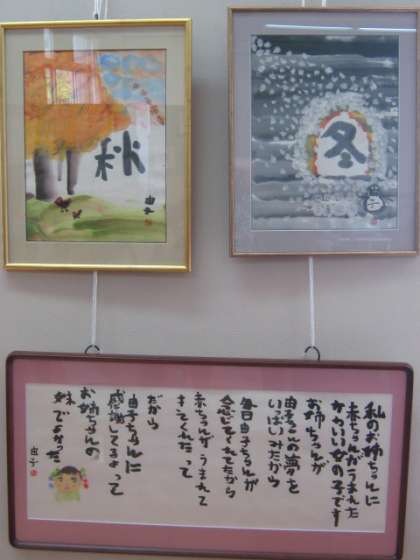 秋
由子
冬
子
私のお姉ちゃんに
赤ちゃんがうまれた
かわいい女の子です
お姉ちゃんが
由子ちゃんの夢を
いっぱいみたから
毎日由子ちゃんが
念じてくれてたから
赤ちゃんがうまれて
きてくれたって
だから
由子ちゃんに
感謝してるよって
お姉ちゃんの
妹でよかった
由子